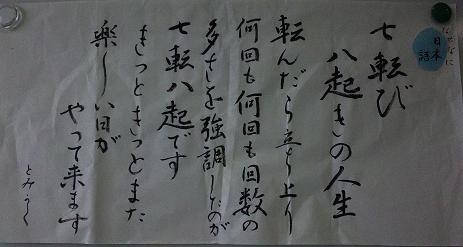 七転び
八起きの人生
転んだら立ち上り
何回も何回も回数の
多さを強調したのが
七転八起です
きっときっとまた
楽しい日が
やって来ます
とみ
日本
語